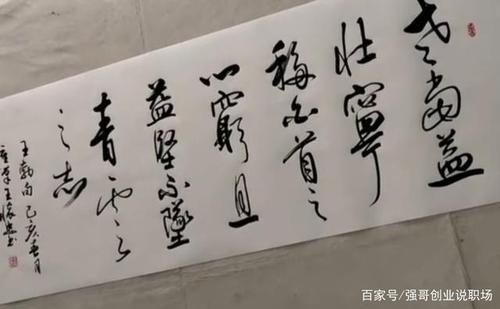 老當益
壮寧
移白首之
心窮且
益堅不墜
青云
之志
王勃句己亥春月
百家号/强哥创业说职场